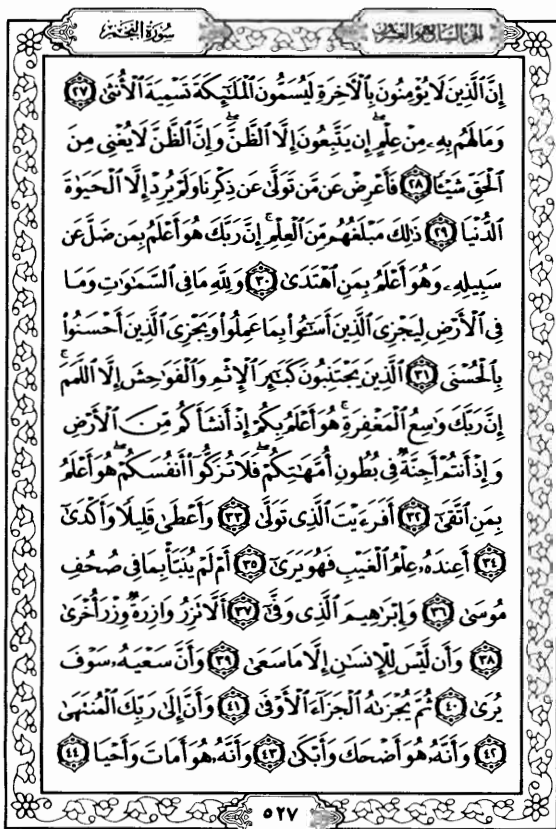 سُورَةُ النَّجْمِ
الجزء السابع والعشرون
إِنَّ الَّذِينَ لَا يُؤْمِنُونَ بِالْآخِرَةِ لَيُسَمُّونَ الْمَلَائِكَةَ تَسْمِيَةَ الْأُنثَىٰ ٢٧
وَمَا لَهُم بِهِۦ مِنْ عِلْمٍ ۖ إِن يَتَّبِعُونَ إِلَّا الظَّنَّ ۖ وَإِنَّ الظَّنَّ لَا يُغْنِى مِنَ
الْحَقِّ شَيْـًٔا ٢٨ فَأَعْرِضْ عَن مَّن تَوَلَّىٰ عَن ذِكْرِنَا وَلَمْ يُرِدْ إِلَّا الْحَيَوٰةَ
الدُّنْيَا ٢٩ ذَٰلِكَ مَبْلَغُهُم مِّنَ الْعِلْمِ ۚ إِنَّ رَبَّكَ هُوَ أَعْلَمُ بِمَن ضَلَّ عَن
سَبِيلِهِۦ وَهُوَ أَعْلَمُ بِمَنِ اهْتَدَىٰ ٣٠ وَلِلَّهِ مَا فِى السَّمَٰوَٰتِ وَمَا
فِى الْأَرْضِ لِيَجْزِىَ الَّذِينَ أَسَٰٓـُٔوا۟ بِمَا عَمِلُوا۟ وَيَجْزِىَ الَّذِينَ أَحْسَنُوا۟
بِالْحُسْنَى ٣١ الَّذِينَ يَجْتَنِبُونَ كَبَٰٓئِرَ الْإِثْمِ وَالْفَوَٰحِشَ إِلَّا اللَّمَمَ ۚ
إِنَّ رَبَّكَ وَٰسِعُ الْمَغْفِرَةِ ۚ هُوَ أَعْلَمُ بِكُمْ إِذْ أَنشَأَكُم مِّنَ الْأَرْضِ
وَإِذْ أَنتُمْ أَجِنَّةٌ فِى بُطُونِ أُمَّهَٰتِكُمْ ۖ فَلَا تُزَكُّوٓا۟ أَنفُسَكُمْ ۖ هُوَ أَعْلَمُ
بِمَنِ اتَّقَىٰٓ ٣٢ أَفَرَءَيْتَ الَّذِى تَوَلَّىٰ ٣٣ وَأَعْطَىٰ قَلِيلًا وَأَكْدَىٰٓ
٣٤ أَعِندَهُۥ عِلْمُ الْغَيْبِ فَهُوَ يَرَىٰٓ ٣٥ أَمْ لَمْ يُنَبَّأْ بِمَا فِى صُحُفِ
مُوسَىٰ ٣٦ وَإِبْرَٰهِيمَ الَّذِى وَفَّىٰٓ ٣٧ أَلَّا تَزِرُ وَازِرَةٌ وِزْرَ أُخْرَىٰ
٣٨ وَأَن لَّيْسَ لِلْإِنسَٰنِ إِلَّا مَا سَعَىٰ ٣٩ وَأَنَّ سَعْيَهُۥ سَوْفَ
يُرَىٰ ٤٠ ثُمَّ يُجْزَىٰهُ الْجَزَآءَ الْأَوْفَىٰ ٤١ وَأَنَّ إِلَىٰ رَبِّكَ الْمُنتَهَىٰ
٤٢ وَأَنَّهُۥ هُوَ أَضْحَكَ وَأَبْكَىٰ ٤٣ وَأَنَّهُۥ هُوَ أَمَاتَ وَأَحْيَا ٤٤
٥٢٧